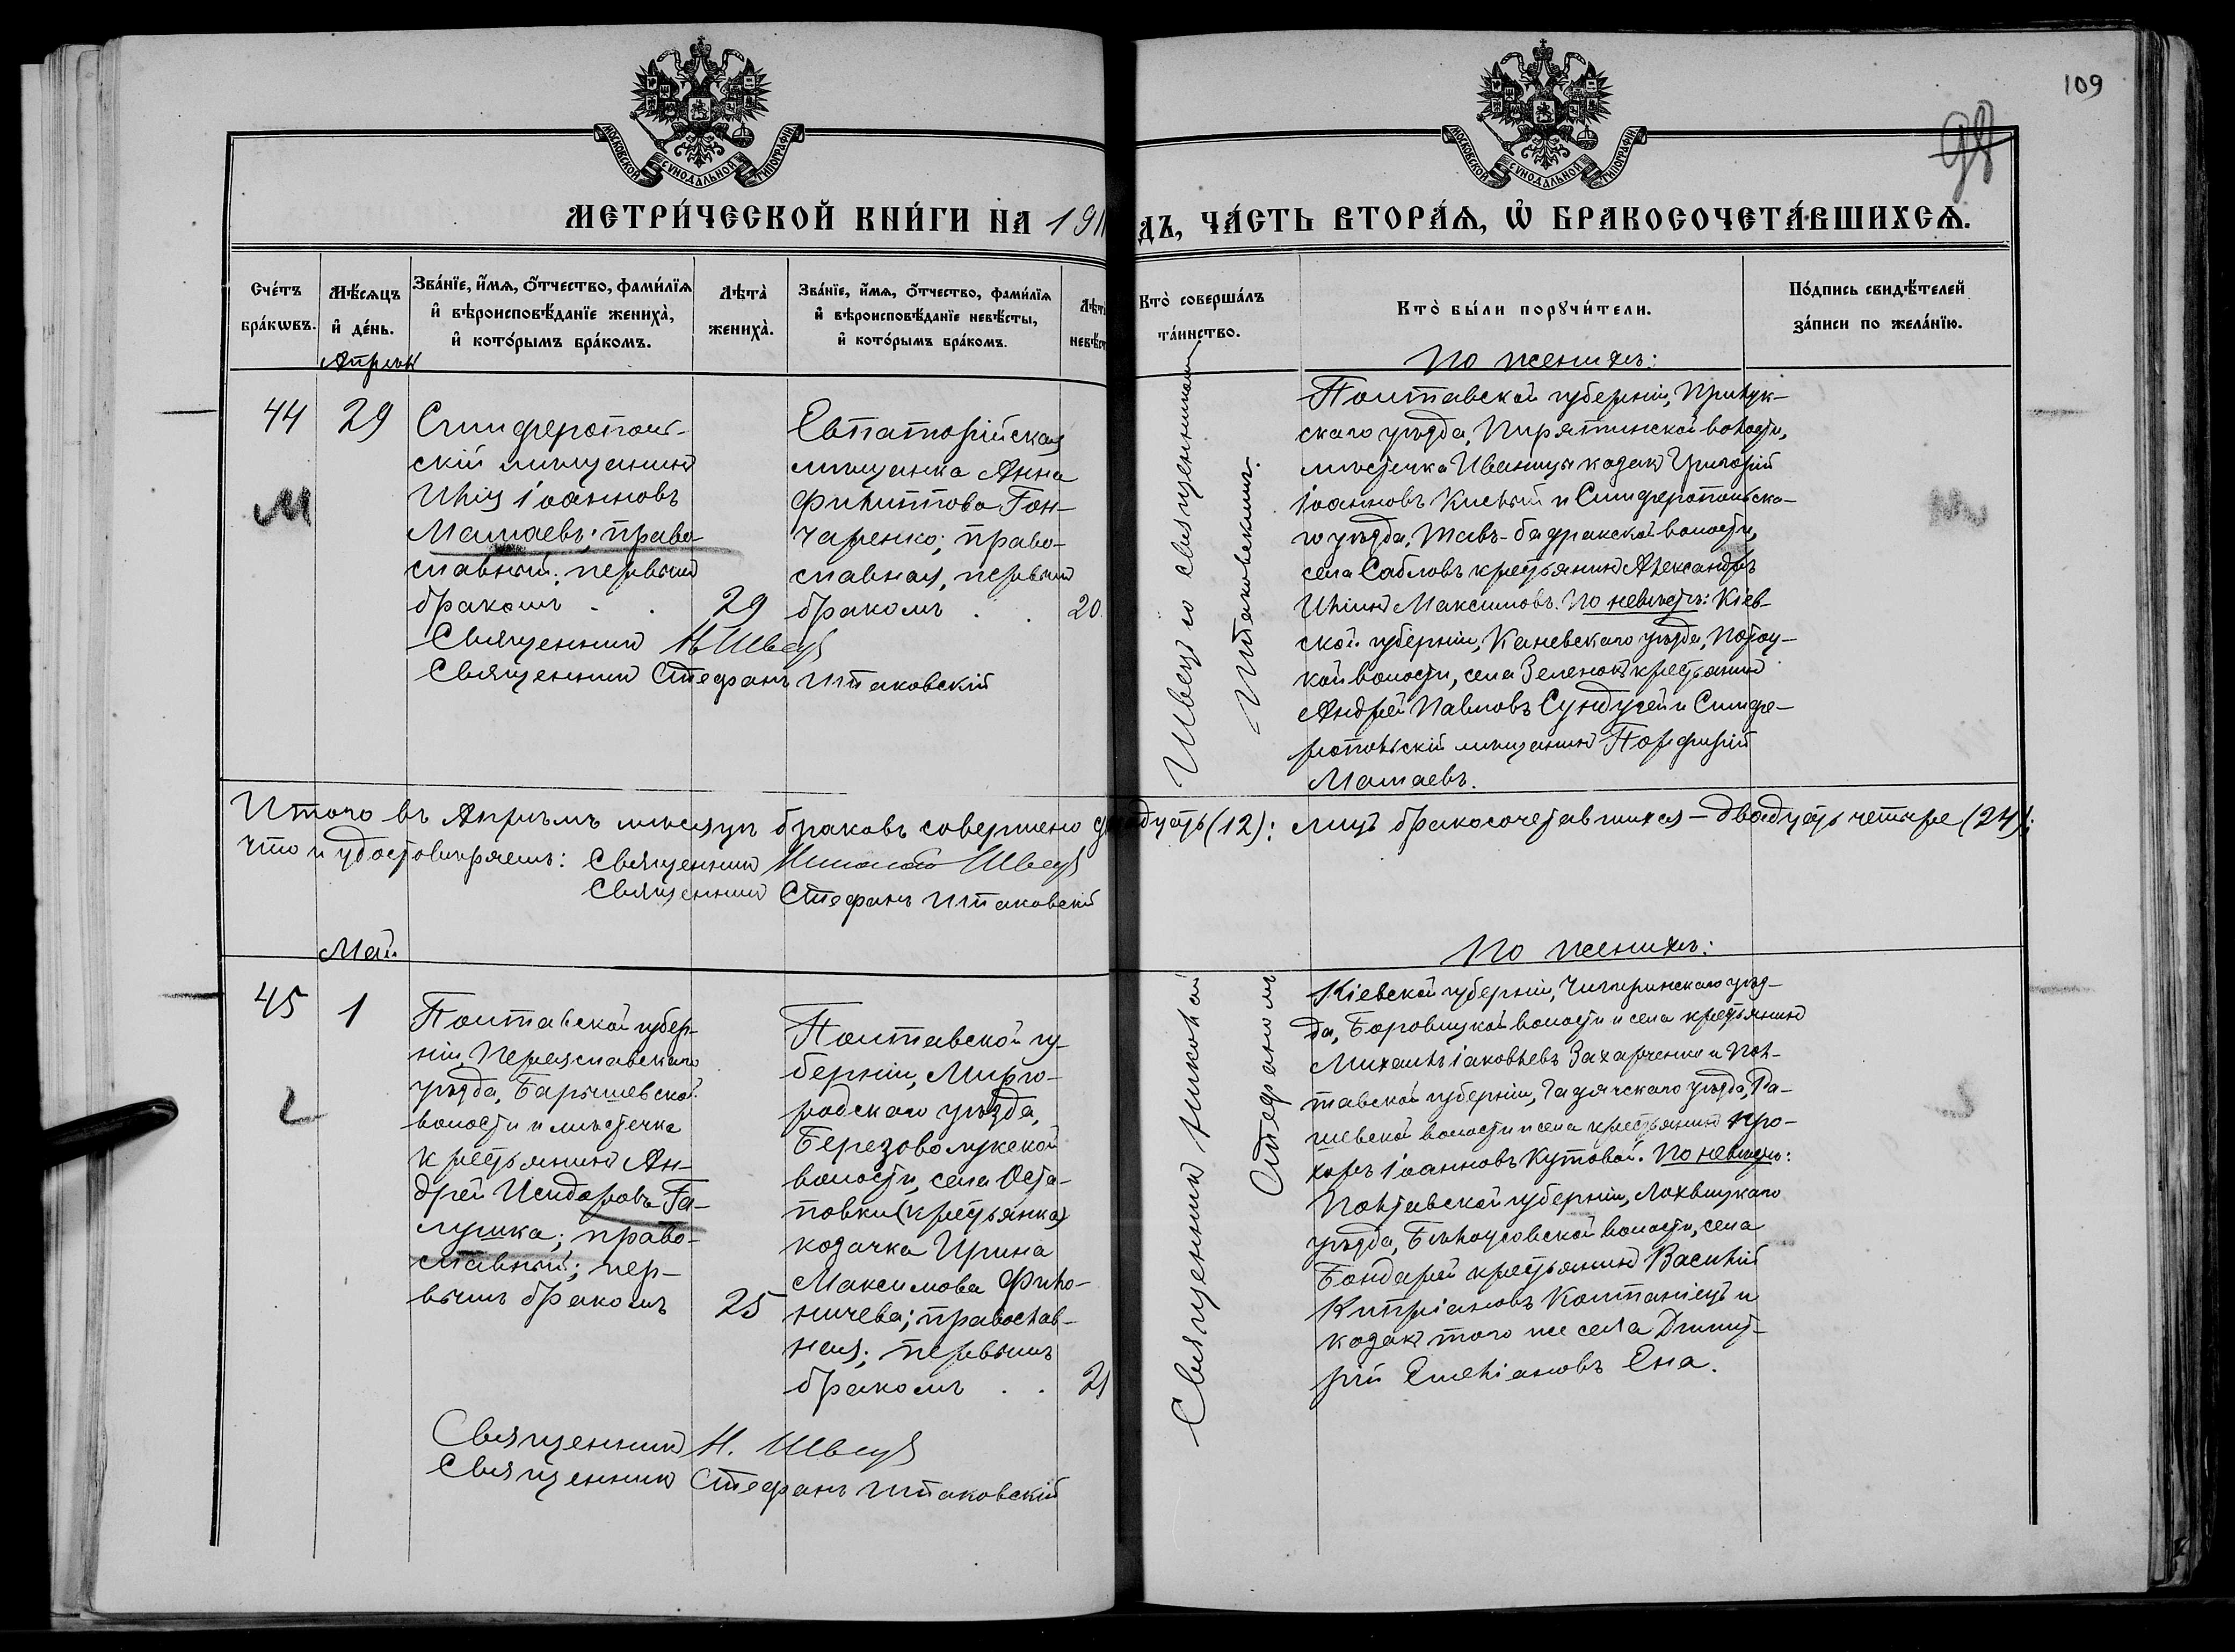 109
98
МОСКОВСКОЙ СѴНОДАЛЬНОЙ ТИПОГРАФІИ
МОСКОВСКОЙ СѴНОДАЛЬНОЙ ТИПОГРАФІИ
МЕТРИ́ЧЕСКОЙ КНИ́ГИ НА 191
ДЪ, ЧА́СТЬ ВТОРА́Ѧ, Ѡ҆ БРАКОСОЧЕТА́ВШИХСѦ.
Сче́тъ бра́кѡвъ.
Мѣ́сѧцъ и҆ де́нь.
Зва́нїе, и҆́мѧ, ѻ҆́тчество, фами́лїѧ
и҆ вѣроисповѣ́данїе жениха̀,
и҆ кото́рымъ бра́комъ.
Лѣта̀ жениха̀.
Зва́нїе, и҆́мѧ, ѻ҆́тчество, фами́лїѧ
и҆ вѣроисповѣ́данїе невѣ́сты,
и҆ кото́рымъ бра́комъ.
Кто̀ соверша́лъ
та́инство.
Кто̀ бы́ли порꙋчи́тели.
По́дпись свидѣ́телей
за́писи по жела́нїю.
Апрѣль
44
29
М
Симферополь-
скій мѣщанинъ
Илія Іоанновъ
Мамаевъ; право-
славный; первымъ
бракомъ . . 29
Евпаторійская
мѣщанка Анна
Филиппова Гон-
чаренко; право-
славная, первымъ
бракомъ . . 20.
Священникъ Н Швецъ
Священникъ Стефанъ Шпаковскій
Швецъ со священникомъ
Шпаковскимъ.
По женихѣ:
Полтавской губерніи, Прилук-
скаго уѣзда, Пирятинской волости,
мѣстечка Иваницы козакъ Григорій
Іоанновъ Кислый и Симферопольска-
го уѣзда, Тавъ-бадракской волости,
села Сабловъ крестьянинъ Александръ
Иліинъ Максимовъ. По невѣстѣ: Кіев-
ской губерніи, Каневскаго уѣзда, Потоц-
кой волости, села Зеленокъ крестьянинъ
Андрей Павловъ Сундугей и Симфе-
ропольскій мѣщанинъ Порфирій
Мамаевъ.
Итого въ Апрѣлѣ мѣсяцѣ браковъ совершено двѣнадцать (12): лицъ бракосочетавшихся – двадцать четыре (24);
что и удостовѣряемъ: Священникъ Николай Швецъ
Священникъ Стефанъ Шпаковскій
Май.
45
1
Полтавской губер-
ніи, Переяславскаго
уѣзда, Барышевской
волости и мѣстечка
крестьянинъ Ан-
дрей Исидоровъ Га-
лушка; право-
славный; пер-
вымъ бракомъ 25
Полтавской гу-
берніи, Мирго-
родскаго уѣзда,
Березоволукской
волости, села Оста-
повки (крестьянка)
козачка Ирина
Максимова Фило-
ничева; православ-
ная; первымъ
бракомъ . . 21
Священникъ Н. Швецъ
Священникъ Стефанъ Шпаковскій
Священникъ Николай
Стефаномъ
По женихѣ:
Кіевской губерніи, Чигиринскаго уѣз-
да, Боровицкой волости и села крестьянинъ
Михаилъ Іаковлевъ Захарченко и Пол-
тавской губерніи, Гадячскаго уѣзда, Ра-
шевской волости и села крестьянинъ Про-
хоръ Іоанновъ Кутовой. По невѣстѣ:
Полтавской губерніи, Лохвицкаго
уѣзда, Бѣлоусовской волости, села
Бондарей крестьянинъ Василій
Кипріановъ Колтанецъ и
козакъ того же села Димит-
рій Емеліановъ Ена.